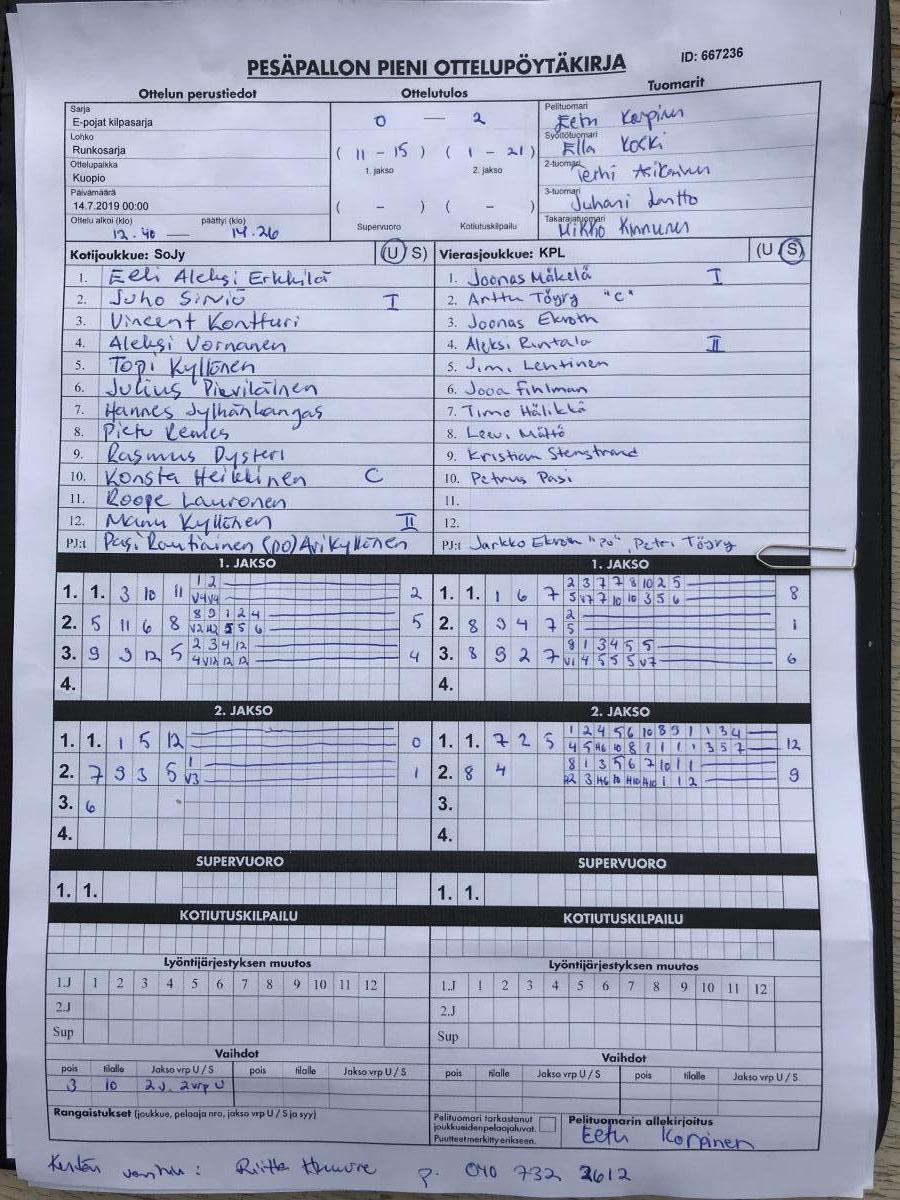 PESÄPALLON PIENI OTTELUPÖYTÄKIRJA
ID: 667236
Ottelun perustiedot
Sarja
E-pojat kilpasarja
Lohko
Runkosarja
Ottelupaikka
Kuopio
Päivämäärä
14.7.2019 00:00
Ottelu alkoi (klo) päättyi (klo)
12.40 — 14.26
Ottelutulos
0 — 2
( 11 - 15 ) ( 1 - 21 )
1. jakso 2. jakso
( - ) ( - )
Supervuoro Kotiutuskilpailu
Tuomarit
Pelituomari
Eetu Karpinen
Syöttötuomari
Ella Koski
2-tuomari
Terhi Asikainen
3-tuomari
Juhani
Takarajatuomari
Mikko Kinnunen
Kotijoukkue: SoJy (U S)
1. Eeli Aleksi Erkkilä
2. Juho Sirviö I
3. Vincent Kontturi
4. Aleksi Vornanen
5. Topi Kyllönen
6. Julius Pieviläinen
7. Hannes Jylhänkangas
8. Pietu Remes
9. Rasmus Dysterl
10. Konsta Heikkinen C
11. Roope Lauronen
12. Manu Kyllönen II
PJ:t Pasi Rautiainen (PO) Ari Kyllönen
Vierasjoukkue: KPL (U S)
1. Joonas Mäkelä I
2. Arttu Töyry "C"
3. Joonas Ekroth
4. Aleksi Rintala II
5. Jimi Lehtinen
6. Jooa Finlman
7. Timo Hälikkä
8. Leevi Mättö
9. Kristian Stenstrand
10. Petrus Pasi
11.
12.
PJ:t Jarkko Ekroth "PO", Petri Töyry
1. JAKSO
1. 1. 3 10 11 1 2 2
V4 V4
2. 5 11 6 8 8 9 1 2 4 5
V2 H2 5 5 6
3. 9 9 12 5 2 3 4 12 4
4 V12 12 12
4.
1. JAKSO
1. 1. 1 6 7 2 3 7 7 8 10 2 5 8
5 V7 7 10 10 3 5 6
2. 8 9 4 7 2 1
5
3. 8 9 2 7 8 1 3 4 5 5 6
V1 4 5 5 5 V7
4.
2. JAKSO
1. 1. 1 5 12 0
2. 7 9 3 5 1 1
V3
3. 6
4.
2. JAKSO
1. 1. 7 2 5 1 2 4 5 6 10 8 9 1 1 3 4 12
4 5 H6 10 8 1 1 1 1 3 5 7
2. 8 4 8 1 3 5 6 7 10 1 1 9
H2 3 H6 10 H10 H10 1 1 2
3.
4.
SUPERVUORO
1. 1.
SUPERVUORO
1. 1.
KOTIUTUSKILPAILU
KOTIUTUSKILPAILU
Lyöntijärjestyksen muutos
1.J 1 2 3 4 5 6 7 8 9 10 11 12
2.J
Sup
Lyöntijärjestyksen muutos
1.J 1 2 3 4 5 6 7 8 9 10 11 12
2.J
Sup
Vaihdot
pois tilalle Jakso vrp U / S pois tilalle Jakso vrp U / S
3 10 2J. 2vrp U
Vaihdot
pois tilalle Jakso vrp U / S pois tilalle Jakso vrp U / S
Rangaistukset (joukkue, pelaaja nro, jakso vrp U / S ja syy)
Pelituomari tarkastanut
joukkueiden pelaajaluvat.
Puutteet merkitty erikseen.
Pelituomarin allekirjoitus
Eetu Karpinen
Kentän : Riitta p. 040 732 2612